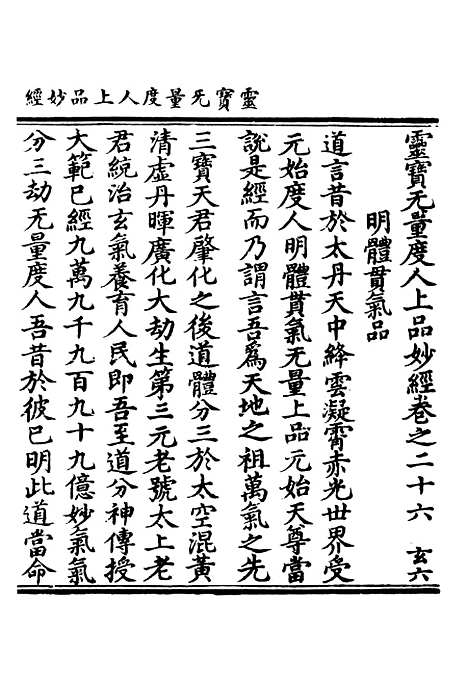 靈寶无量度人上品妙經
靈寶无量度人上品妙經卷之二十六 玄六
明體貫氣品
道言昔於太丹天中絳雲凝霄赤光世界受
元始度人明體貫氣无量上品元始天尊當
說是經而乃謂言吾爲天地之祖萬氣之先
三寶天君肇化之後道體分三於太空混黃
清虛丹暉廣化大劫生第三元老號太上老
君統治玄氣養育人民即吾至道分神傳授
大範已經九萬九千九百九十九億妙氣氣
分三劫无量度人吾昔於彼已明此道當命